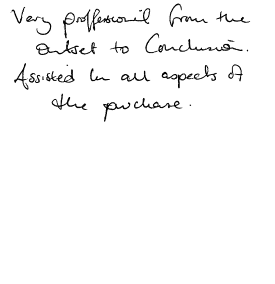 Very proffesional from the
outset to Conclusion.
Assisted in all aspects of
the purchase.